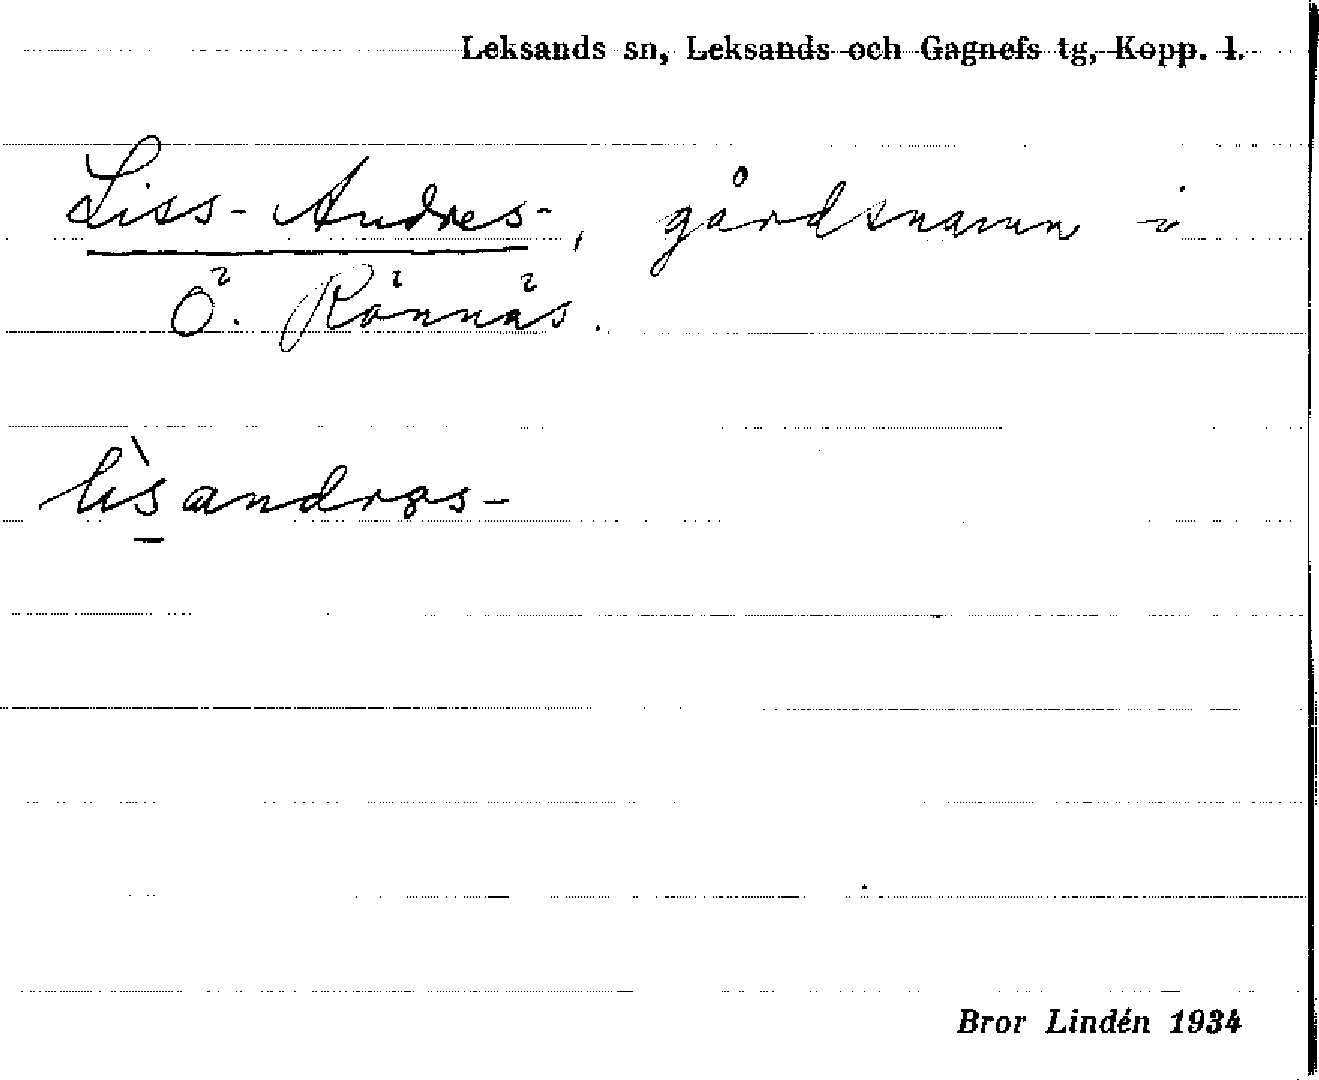 Leksands sn, Leksands och Gagnefs tg, Kopp. l.
Liss-Andres-, gårdsnamn i
Ö. Rönnäs.
lìsandrəs-
Bror Lindén 1934